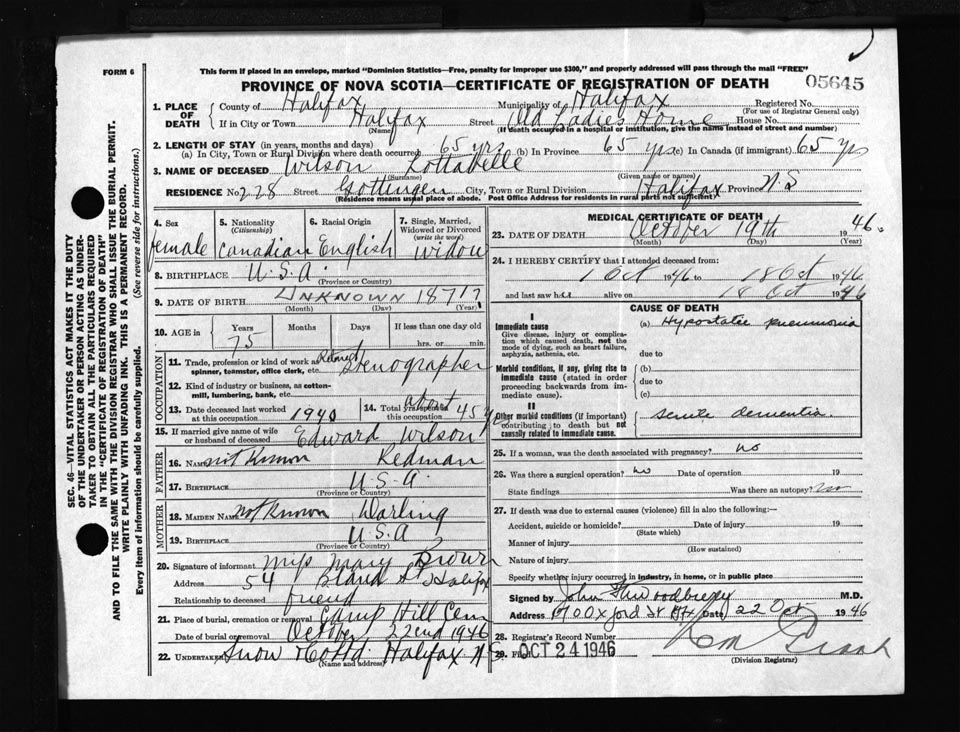 FORM 6
This form if placed in an envelope, marked "Dominion Statistics—Free, penalty for improper use $300," and properly addressed will pass through the mail "FREE"
PROVINCE OF NOVA SCOTIA—CERTIFICATE OF REGISTRATION OF DEATH 05645
SEC. 46—VITAL STATISTICS ACT MAKES IT THE DUTY
OF THE UNDERTAKER OR PERSON ACTING AS UNDER-
TAKER TO OBTAIN ALL THE PARTICULARS REQUIRED
IN THE "CERTIFICATE OF REGISTRATION OF DEATH"
AND TO FILE THE SAME WITH THE DIVISION REGISTRAR WHO SHALL ISSUE THE BURIAL PERMIT.
WRITE PLAINLY WITH UNFADING INK. THIS IS A PERMANENT RECORD.
Every item of information should be carefully supplied. (See reverse side for instructions.)
1. PLACE OF DEATH
County of Halifax Municipality of Halifax Registered No.
(For use of Registrar General only)
If in City or Town Halifax Street Old Ladies Home House No.
(Name) (If death occurred in a hospital or institution, give the name instead of street and number)
2. LENGTH OF STAY (in years, months and days)
(a) In City, Town or Rural Division where death occurred 65 yrs (b) In Province 65 yrs (c) In Canada (if immigrant) 65 yrs
3. NAME OF DECEASED Wilson Lottabelle
(Surname) (Given name or names)
RESIDENCE No. 228 Street Gottingen City, Town or Rural Division Halifax Province N.S
(Residence means usual place of abode. Post Office Address for residents in rural parts not sufficient)
4. Sex
female
5. Nationality
(Citizenship)
Canadian
6. Racial Origin
English
7. Single, Married,
Widowed or Divorced
(write the word)
Widow
8. BIRTHPLACE U.S.A.
(Province or Country)
9. DATE OF BIRTH UNKNOWN 1871?
(Month) (Day) (Year)
10. AGE in Years Months Days If less than one day old
75 hrs. or min.
OCCUPATION
11. Trade, profession or kind of work as Retired Stenographer
spinner, teamster, office clerk, etc.
12. Kind of industry or business, as cotton-
mill, lumbering, bank, etc.
13. Date deceased last worked
at this occupation 1940
14. Total yrs. spent in
this occupation about 45 yrs
15. If married give name of wife
or husband of deceased Edward Wilson
FATHER
16. NAME not Known Redman
17. BIRTHPLACE U.S.A.
(Province or Country)
MOTHER
18. MAIDEN NAME not Known Darling
19. BIRTHPLACE U.S.A
(Province or Country)
20. Signature of informant Miss Mary Brown
Address 54 Bland St Halifax
Relationship to deceased friend
21. Place of burial, cremation or removal Camp Hill Cem
Date of burial or removal October 22nd 1946
22. Undertaker Snow & Co Ltd. Halifax N.S.
(Name and address)
MEDICAL CERTIFICATE OF DEATH
23. DATE OF DEATH October 19th 1946.
(Month) (Day) (Year)
24. I HEREBY CERTIFY that I attended deceased from
1 Oct 1946 to 18 Oct 1946
and last saw her alive on 18 Oct 1946
CAUSE OF DEATH
I
Immediate cause
Give disease, injury or complica-
tion which caused death, not the
mode of dying, such as heart failure,
asphyxia, asthenia, etc.
(a) Hypostatic pneumonia
due to
Morbid conditions, if any, giving rise to
immediate cause (stated in order
proceeding backwards from im-
mediate cause).
(b)
due to
(c)
II
Other morbid conditions (if important)
contributing to death but not
causally related to immediate cause.
senile dementia
25. If a woman, was the death associated with pregnancy? no
26. Was there a surgical operation? no Date of operation 19
State findings Was there an autopsy? no
27. If death was due to external causes (violence) fill in also the following:—
Accident, suicide or homicide? Date of injury 19
(State which)
Manner of injury
(How sustained)
Nature of injury
Specify whether injury occurred in industry, in home, or in public place
Signed by John F Woodbury M.D.
Address 170 Oxford St Hfx Date 22 Oct 1946
28. Registrar's Record Number
29. Filed OCT 24 1946
(Division Registrar)